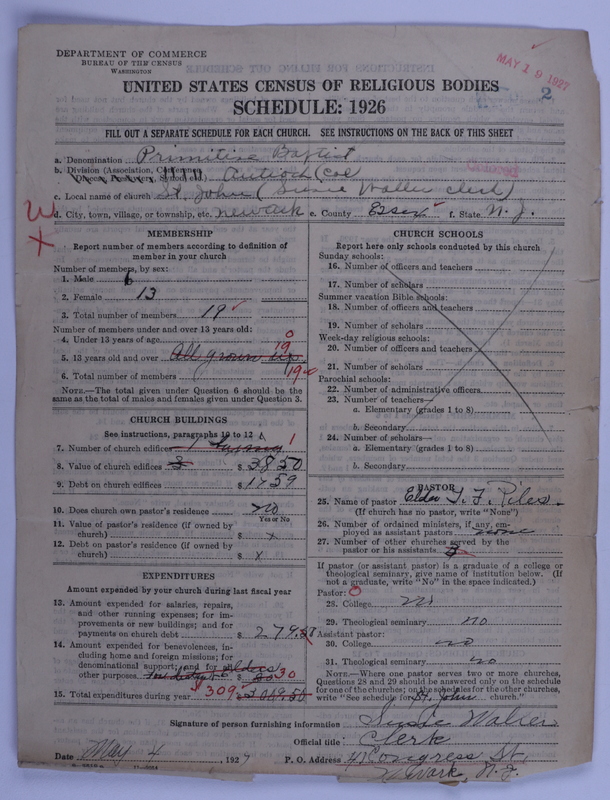 DEPARTMENT OF COMMERCE
BUREAU OF THE CENSUS
WASHINGTON
MAY 19 1927
2
UNITED STATES CENSUS OF RELIGIOUS BODIES
SCHEDULE: 1926
FILL OUT A SEPARATE SCHEDULE FOR EACH CHURCH. SEE INSTRUCTIONS ON THE BACK OF THIS SHEET
a. Denomination Primitive Baptist
b. Division (Association, Conference, Diocese, Presbytery, Synod, etc.) Antioch (Col)
Colored
c. Local name of church St. John (Susie Waller clerk)
d. City, town, village, or township, etc. Newark e. County Essex f. State N. J.
MEMBERSHIP
Report number of members according to definition of member in your church
Number of members, by sex:
1. Male 6
2. Female 13
3. Total number of members 19
Number of members under and over 13 years old:
4. Under 13 years of age 0
5. 13 years old and over All grown up 19
6. Total number of members 19
NOTE.—The total given under Question 6 should be the same as the total of males and females given under Question 3.
CHURCH BUILDINGS
See instructions, paragraphs 10 to 12
7. Number of church edifices 1
8. Value of church edifices $ 3850
9. Debt on church edifices $ 1759
10. Does church own pastor's residence no
Yes or No
11. Value of pastor's residence (if owned by church) $ x
12. Debt on pastor's residence (if owned by church) $ x
EXPENDITURES
Amount expended by your church during last fiscal year
13. Amount expended for salaries, repairs, and other running expenses; for improvements or new buildings; and for payments on church debt $ 279.58
14. Amount expended for benevolences, including home and foreign missions; for denominational support; and for all other purposes $ 30
15. Total expenditures during year $ 309
CHURCH SCHOOLS
Report here only schools conducted by this church
Sunday schools:
16. Number of officers and teachers
17. Number of scholars
Summer vacation Bible schools:
18. Number of officers and teachers
19. Number of scholars
Week-day religious schools:
20. Number of officers and teachers
21. Number of scholars
Parochial schools:
22. Number of administrative officers
23. Number of teachers—
a. Elementary (grades 1 to 8)
b. Secondary
24. Number of scholars—
a. Elementary (grades 1 to 8)
b. Secondary
PASTOR
25. Name of pastor Elder T. F. Piles
(If church has no pastor, write "None")
26. Number of ordained ministers, if any, employed as assistant pastors none
27. Number of other churches served by the pastor or his assistants
If pastor (or assistant pastor) is a graduate of a college or theological seminary, give name of institution below. (If not a graduate, write "No" in the space indicated.)
Pastor:
28. College no
29. Theological seminary no
Assistant pastor:
30. College no
31. Theological seminary no
NOTE.—Where one pastor serves two or more churches, Questions 28 and 29 should be answered only on the schedule for one of the churches; on the schedules for the other churches, write "See schedule for St. John church."
Signature of person furnishing information Susie Waller
Official title: Clerk
Date May 4, 1927 P. O. Address 41 Congress St.
Newark, N. J.